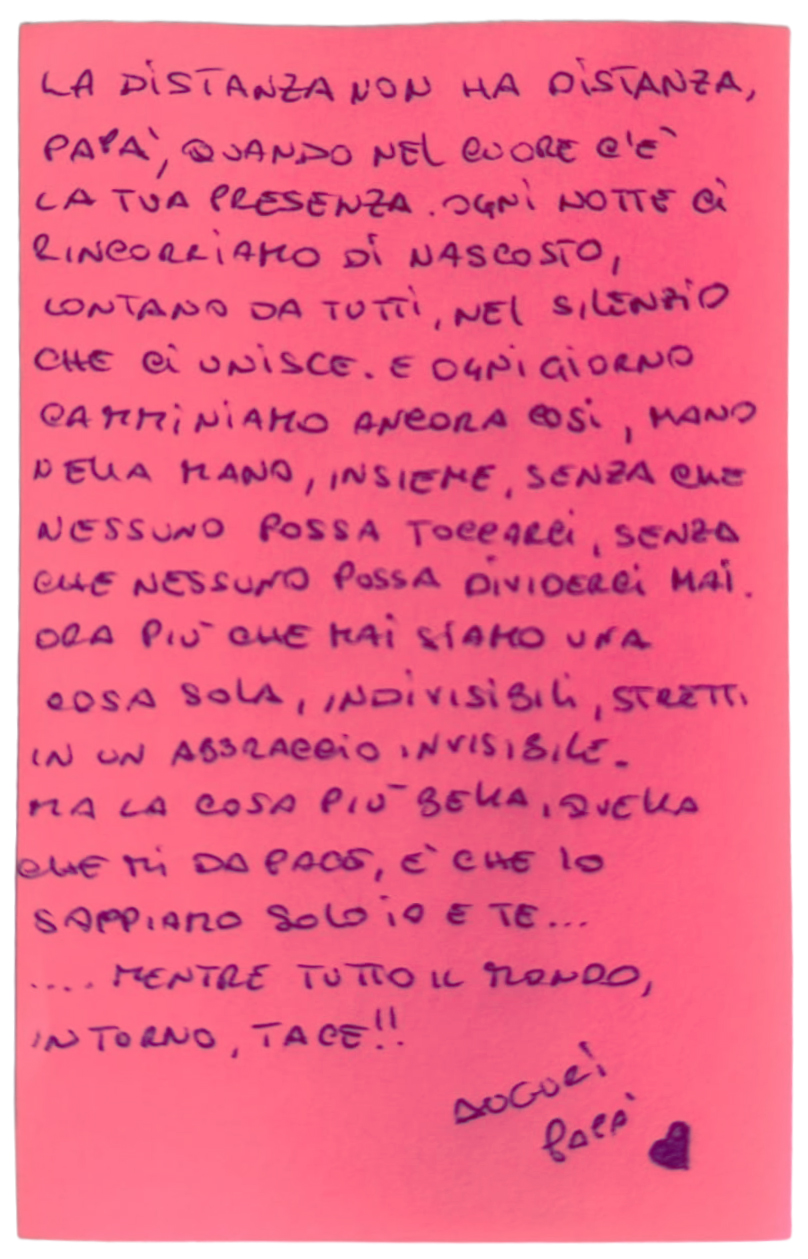 LA DISTANZA NON HA DISTANZA,
PAPA', QUANDO NEL CUORE C'E'
LA TUA PRESENZA. OGNI NOTTE CI
RINCORRIAMO DI NASCOSTO,
LONTANO DA TUTTI, NEL SILENZIO
CHE CI UNISCE. E OGNI GIORNO
CAMMINIAMO ANCORA COSI, MANO
NELLA MANO, INSIEME, SENZA CHE
NESSUNO POSSA TOCCARCI, SENZA
CHE NESSUNO POSSA DIVIDERCI MAI.
ORA PIU' CHE MAI SIAMO UNA
COSA SOLA, INDIVISIBILI, STRETTI
IN UN ABBRACCIO INVISIBILE.
MA LA COSA PIU' BELLA, QUELLA
CHE MI DA PACE, E' CHE LO
SAPPIAMO SOLO IO E TE...
.... MENTRE TUTTO IL MONDO,
INTORNO, TACE!!
AUGURI
PAPA'